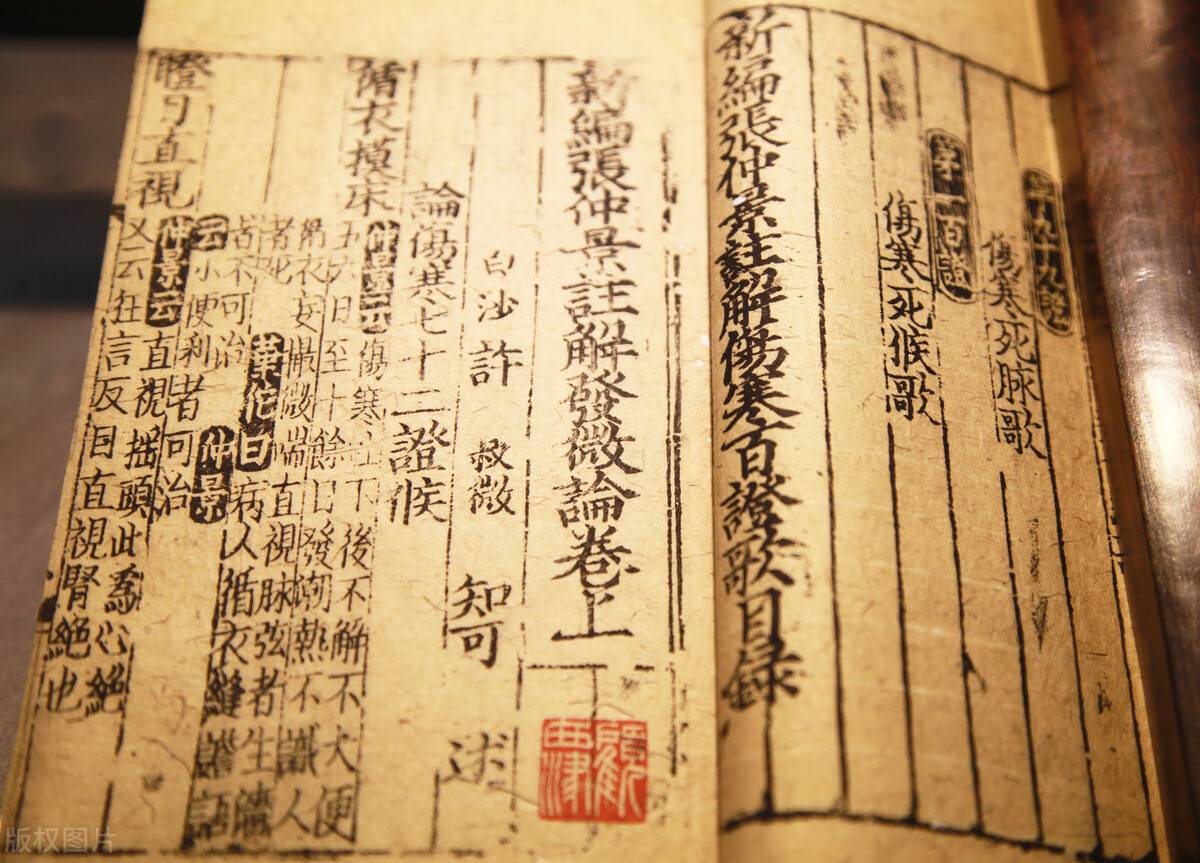 第九十九證
傷寒死脉歌
第一百證
傷寒死候歌
新編張仲景註解傷寒百證歌目録
新編張仲景註解發微論卷上
白沙許 叔微 知可 述
論傷寒七十二證候
循衣摸床
仲景云傷寒吐下後不解不大便
五六日至十餘日發潮熱不識人
循衣妄微喘直視脉弦者生濇
者死華佗曰病人循衣縫譫語
者不可治仲景
云小便利者可治
瞪目直視
仲景云直視揺頭此為心絶
又云狂言反目直視腎絶也
版权图片